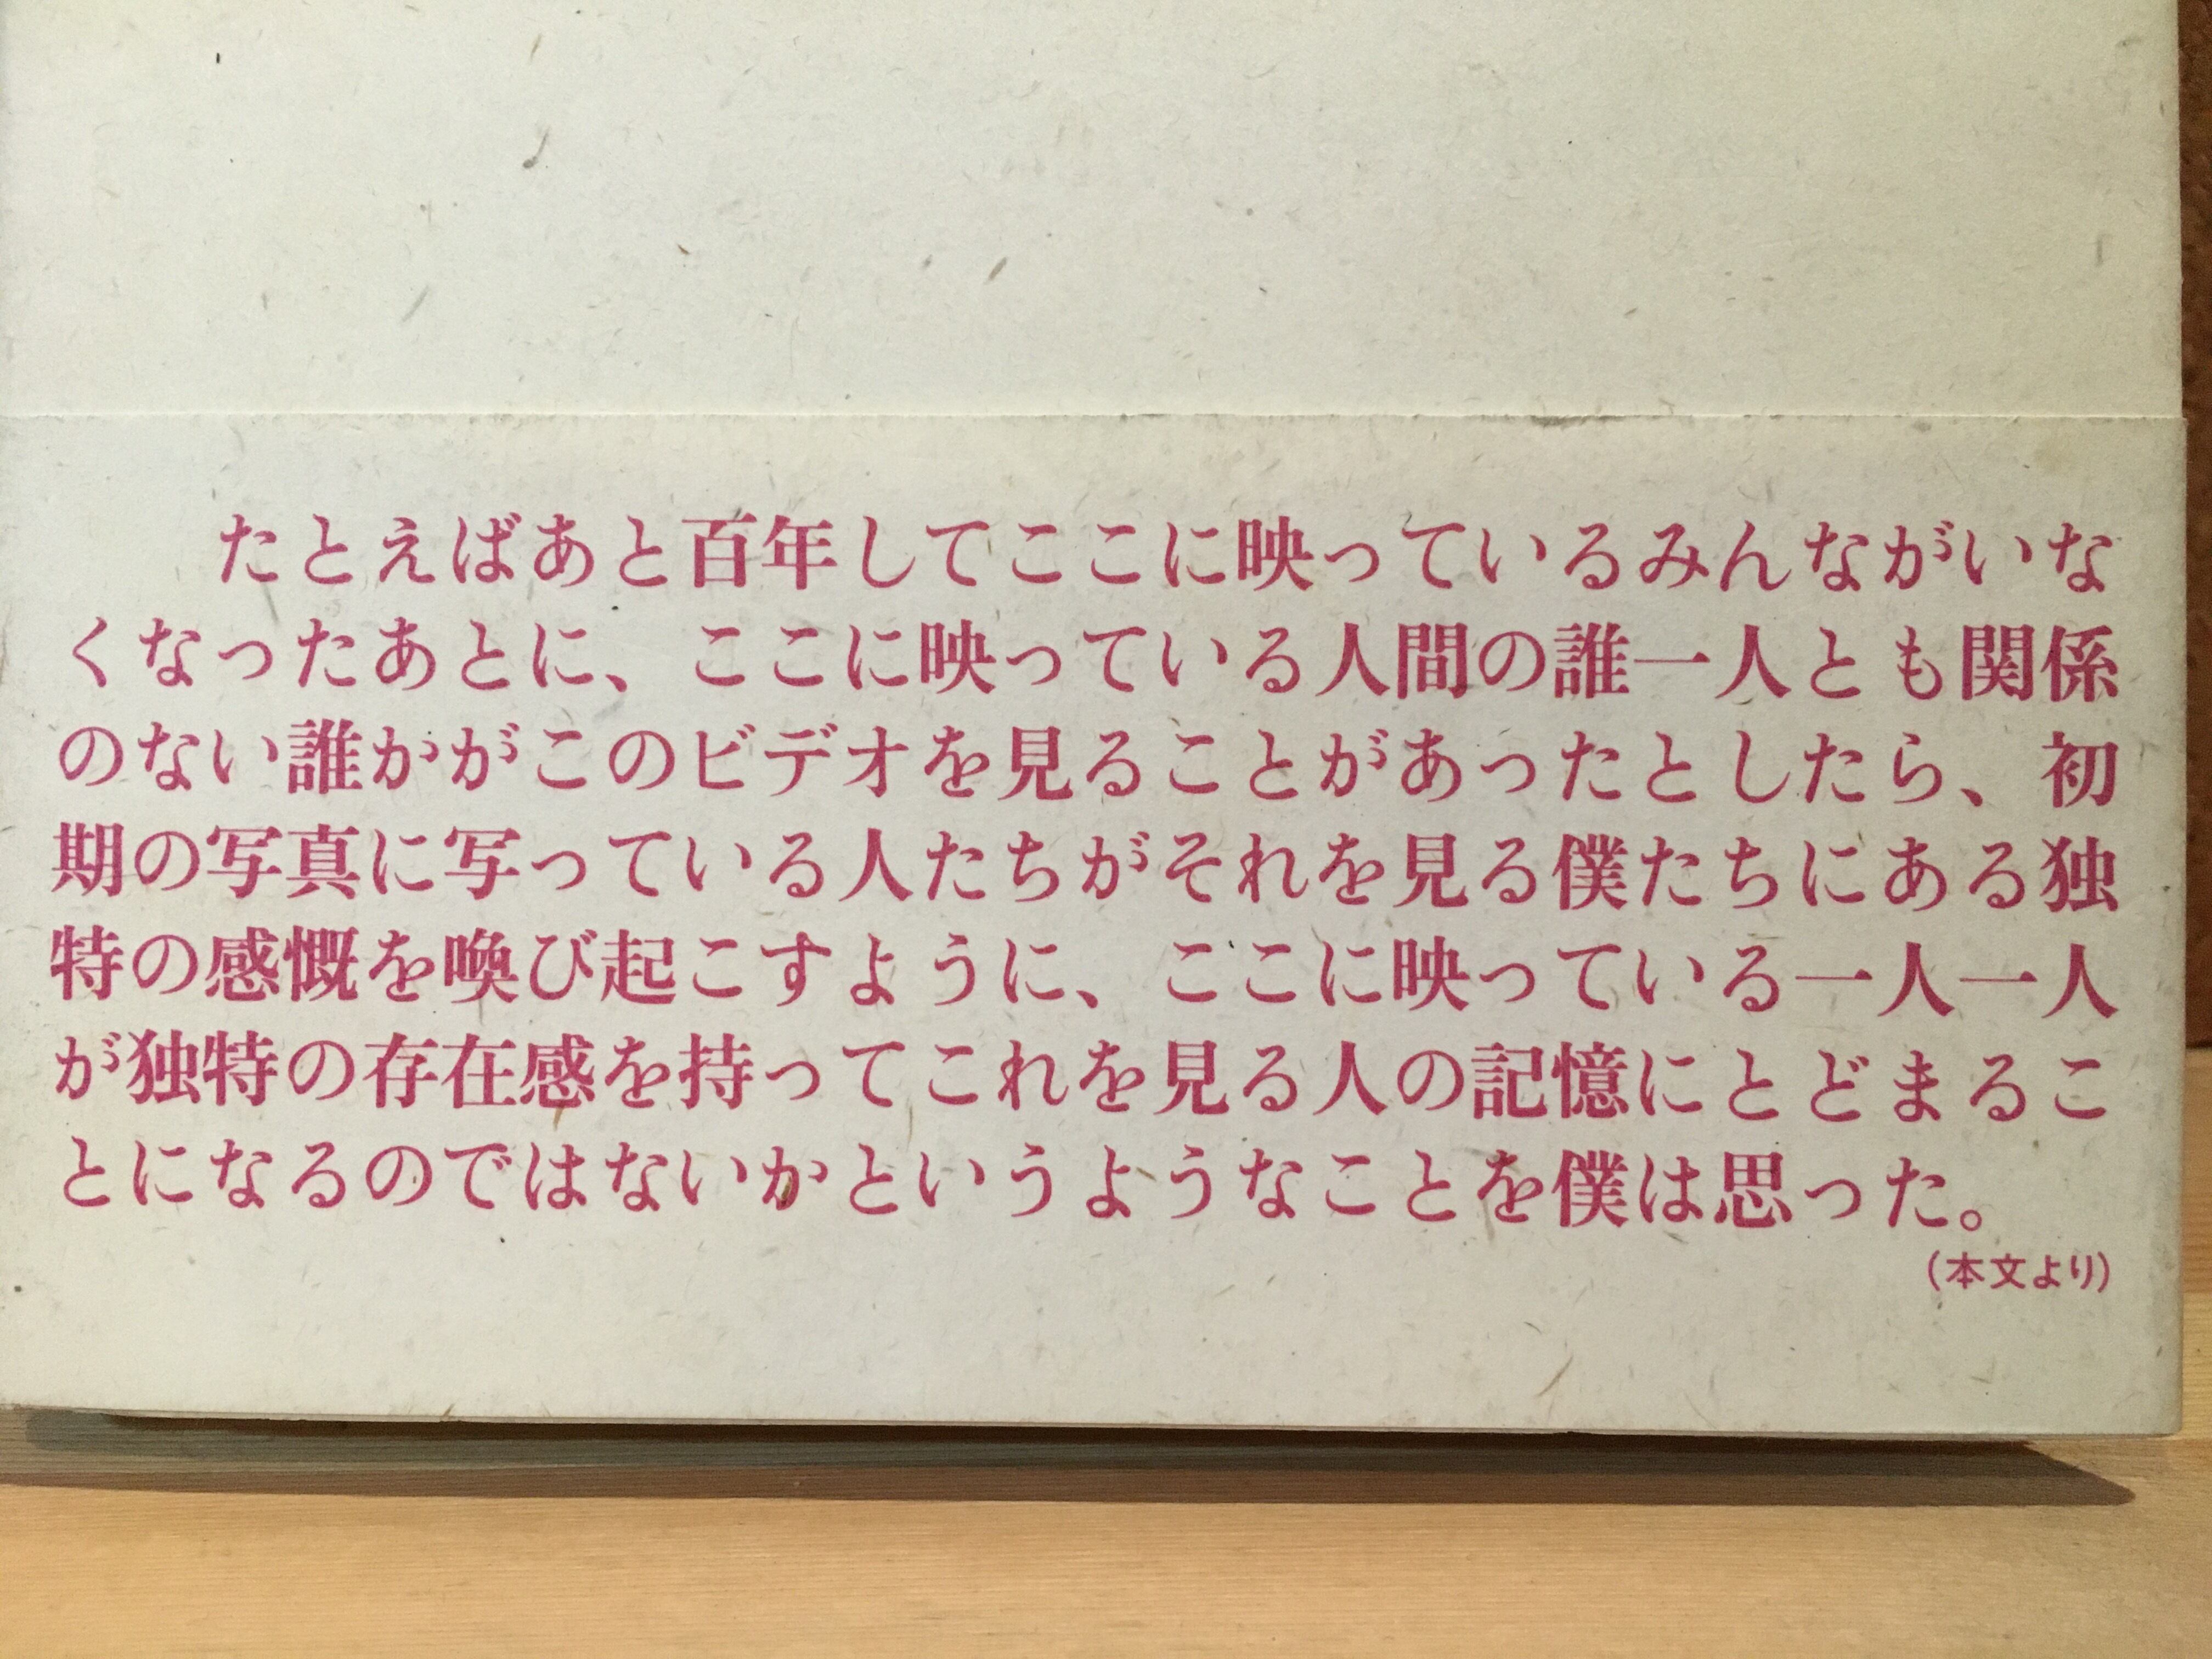 たとえばあと百年してここに映っているみんながいな
くなったあとに、ここに映っている人間の誰一人とも関係
のない誰かがこのビデオを見ることがあったとしたら、初
期の写真に写っている人たちがそれを見る僕たちにある独
特の感慨を喚び起こすように、ここに映っている一人一人
が独特の存在感を持ってこれを見る人の記憶にとどまるこ
とになるのではないかというようなことを僕は思った。
（本文より）